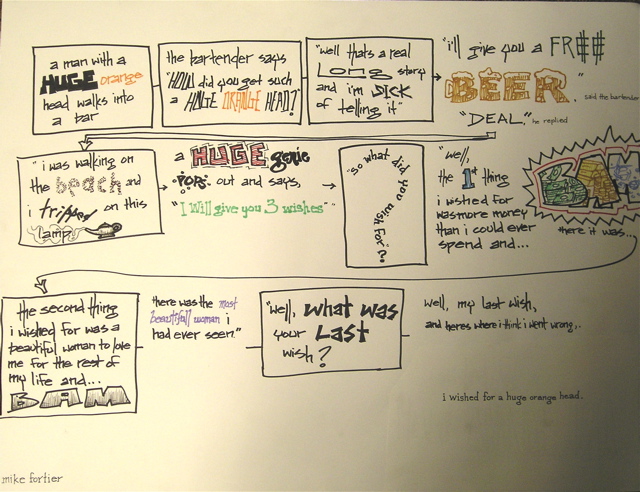 a man with a
HUGE orange
head walks into
a bar
the bartender says
"HOW did you get such
a HUGE ORANGE HEAD?"
"well thats a real
LONG story
and i'm SICK
of telling it"
"i'll give you a FR##
BEER"
said the bartender
"DEAL." he replied
"i was walking on
the beach and
i tripped on this
lamp."
a HUGE genie
POPs out and says,
"I Will give you 3 wishes"
"so what did you wish for"?
"well,
the 1st thing
i wished for
was more money
than i could ever
spend and...
BAM
there it was...
the second thing
i wished for was a
beautiful woman to love
me for the rest of
my life and...
BAM
there was the most
beautifull woman i
had ever seen."
"well, what was
your LAST
wish?
well, my last wish,
and heres where i think i went wrong,..
i wished for a huge orange head.
mike fortier